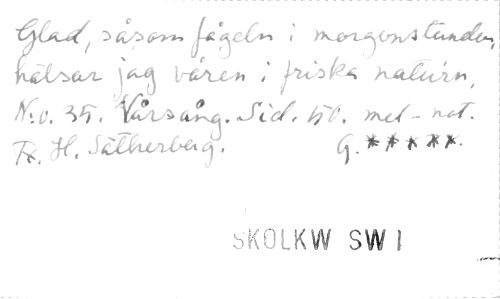 Glad, såsom fågeln i morgonstunden,
hälsar jag våren i friska naturn,
N:o. 35. Vårsång. Sid. 50. mel-not.
Tx. H. Sätherberg. G. *****.
SKOLKW SW I